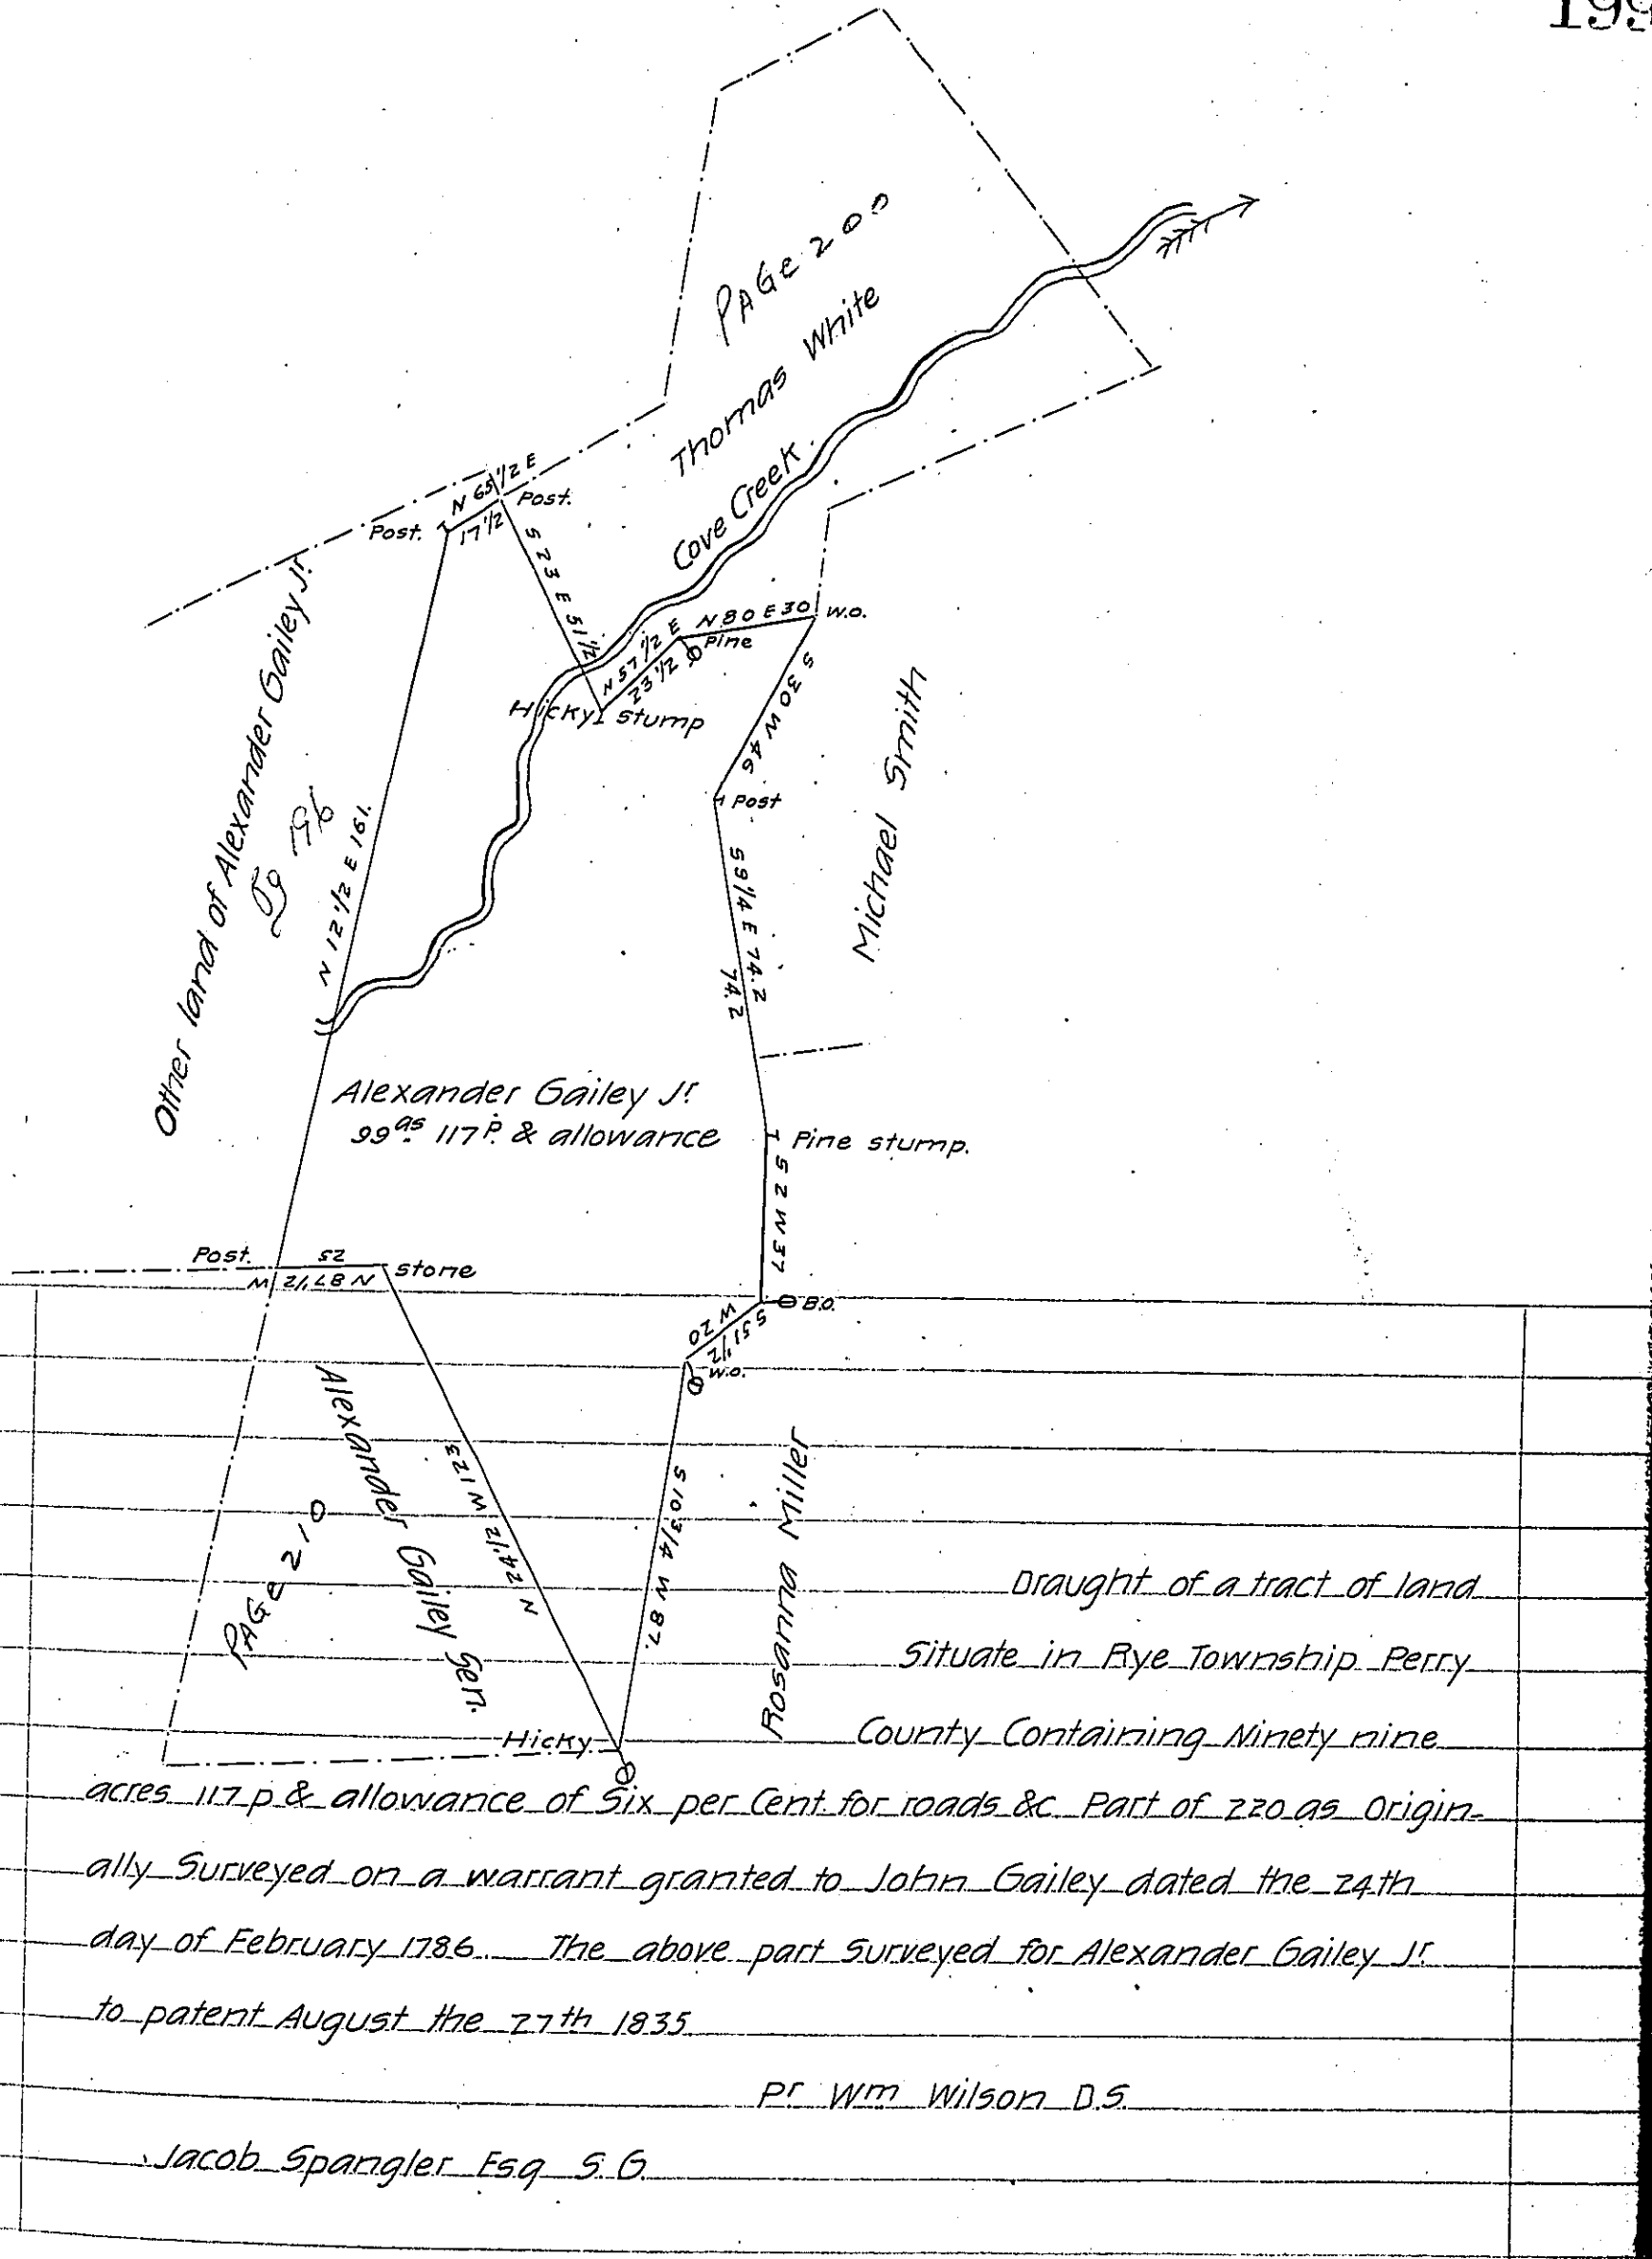 199
PAGe 200
Thomas White
Cove Creek.
N 65 1/2 E
17 1/2
Post.
Post.
S 23 E 51 1/2
N 80 E 30
W.O.
Pine
N 57 1/2 E
23 1/2
Hicky stump
S 30 W 46
Post
Michael Smith
Other land of Alexander Gailey Jr.
Pg 196
N 12 1/2 E 161.
S 9 1/4 E 74.2
74.2
Alexander Gailey Jr.
99 as. 117 P. & allowance
Pine stump.
S 2 W 37
Post.
52
stone
N 87 1/2 W
B.O.
S 51 1/2
W 20
W.O.
Alexander Gailey Sen.
PAGe 210
N 24 1/2 W 123
S 10 3/4 W 87.
Rosanna Miller
Hicky
Draught of a tract of land
Situate in Rye Township Perry
County Containing Ninety nine
acres 117 p & allowance of Six per Cent. for roads &c Part of 220 as Origin-
ally Surveyed on a warrant granted to John Gailey dated the 24th
day of February 1786. The above part Surveyed for Alexander Gailey Jr.
to patent August the 27th 1835
Pr Wm Wilson D.S.
Jacob Spangler Esq S.G.